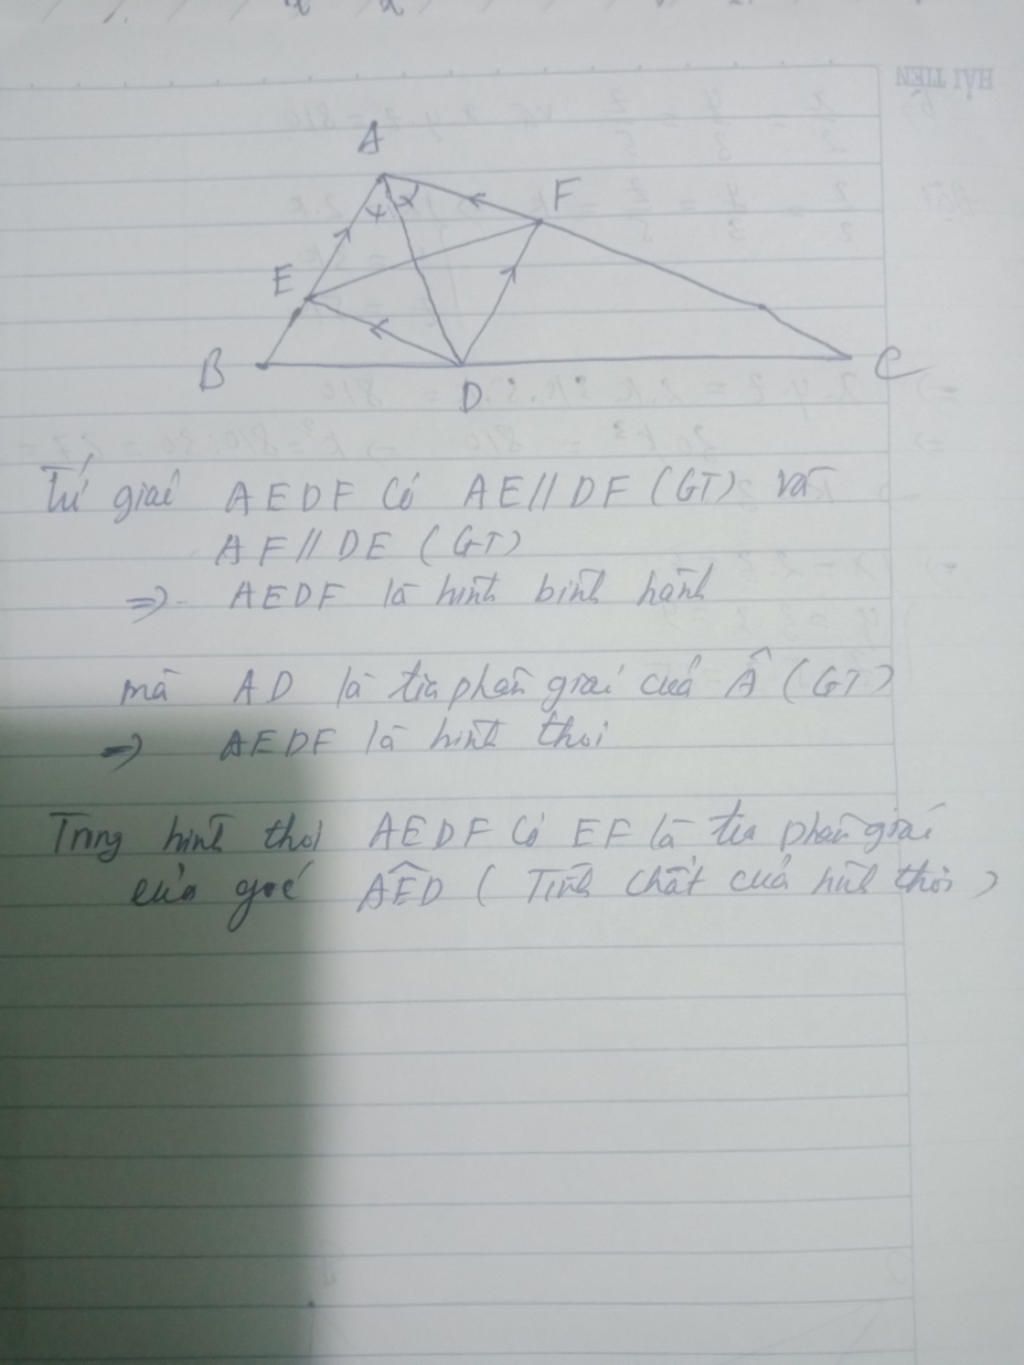 HẢI TIẾN
A
F
E
B
D
C
Tứ giác AEDF có AE // DF (GT) và
AF // DE (GT)
=> AEDF là hình bình hành
mà AD là tia phân giác của Â (GT)
=> AEDF là hình thoi
Trong hình thoi AEDF có EF là tia phân giác
của góc AÊD (Tính chất của hình thoi)